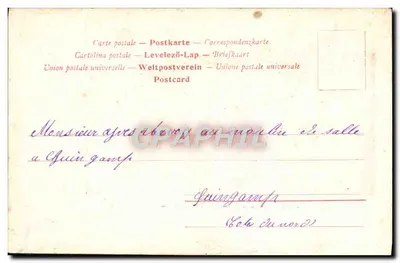 Carte postale — Postkarte — Correspondenzkarte
Cartolina postale — Levelező-Lap — Briefkaart
Union postale universelle — Weltpostverein — Unione postale universale
Postcard
CPAPHIL
Monsieur au moulin de salle
a Guingamp
Guingamp
Cote du nord